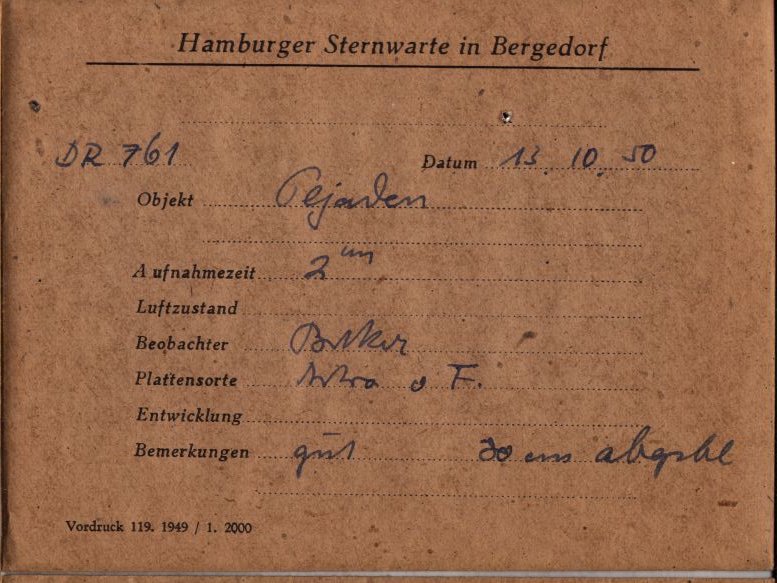 Hamburger Sternwarte in Bergedorf
DR 761 Datum 13. 10. 50
Objekt Plejaden
Aufnahmezeit 2 m
Luftzustand
Beobachter
Plattensorte Astro o F.
Entwicklung
Bemerkungen gut 30 cm abgebl
Vordruck 119. 1949 / 1. 2000